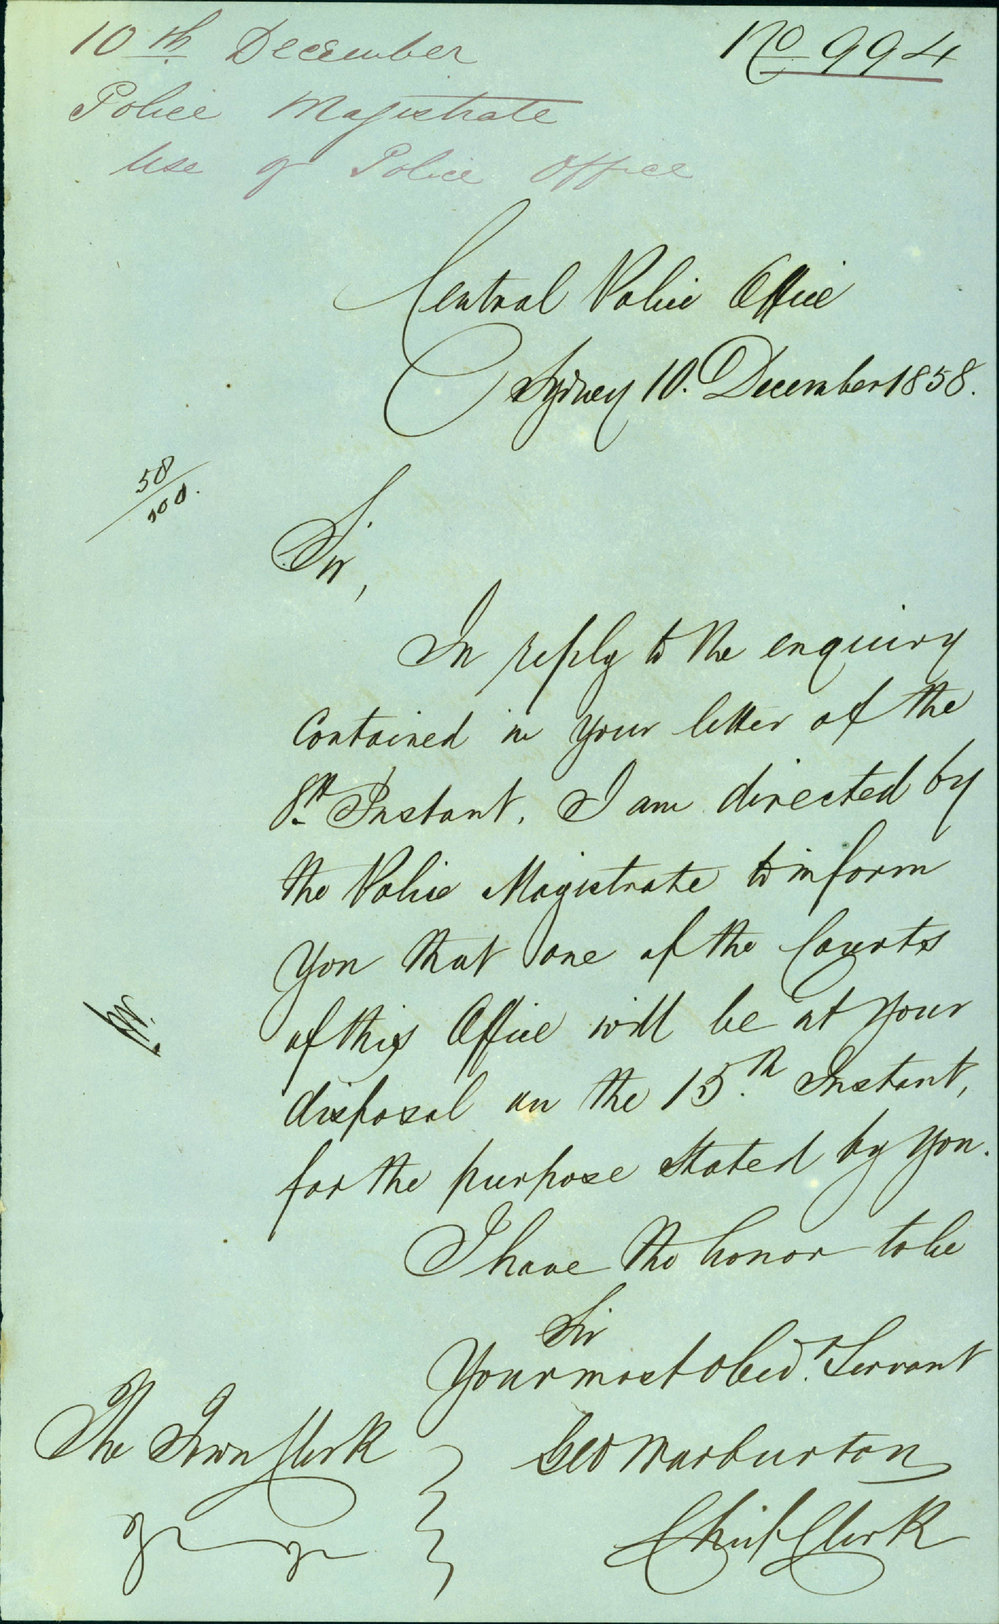 10th December
No 994
Police Magistrate
Use of Police Office
Central Police Office
Sydney 10. December 1858.
58/
Sir,
In reply to the enquiry
contained in your letter of the
8th Instant, I am directed by
the Police Magistrate to inform
you that one of the Courts
of this Office will be at your
disposal on the 15th Instant,
for the purpose stated by you.
I have the honor to be
Sir
Your most obedt. Servant
Geo Warburton
Chief Clerk
The Town Clerk